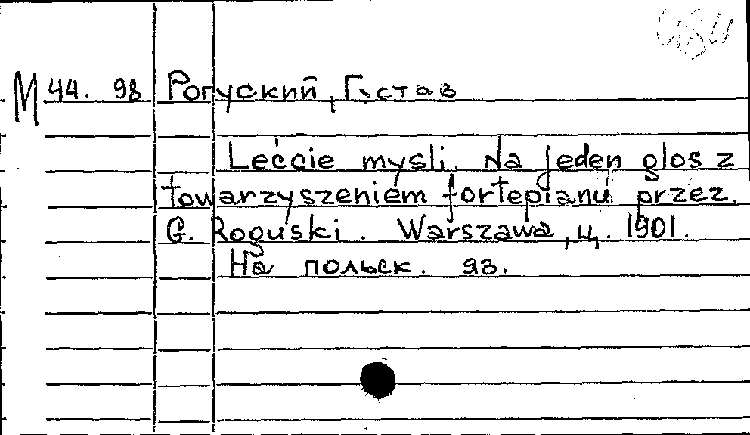 М 44. 98 Рогуский, Густав
Leććie mysli. Na jeden glos z
towarzyszeniem fortepianu przez
G. Roguski. Warszawa, ц. 1901.
На польск. яз.